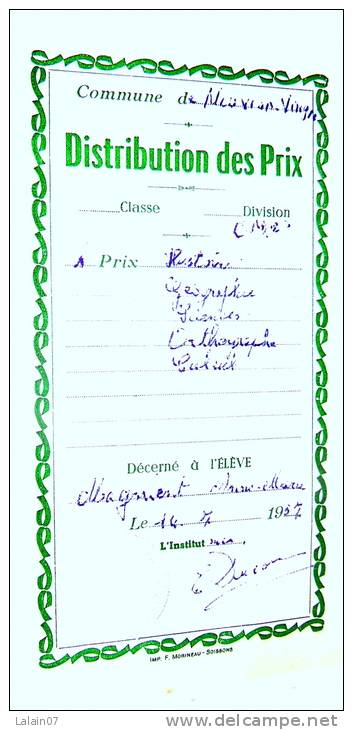 Commune de
Distribution des Prix
Classe Division
CM2
Prix Histoire
Géographie
Sciences
Orthographe
Calcul
Décerné à l'ÉLÈVE
Magnient Anne-Marie
Le 14 7 1957
L'Institutrice,
IMP. F. MORINEAU - SOISSONS
Lalain07
delcampe.net